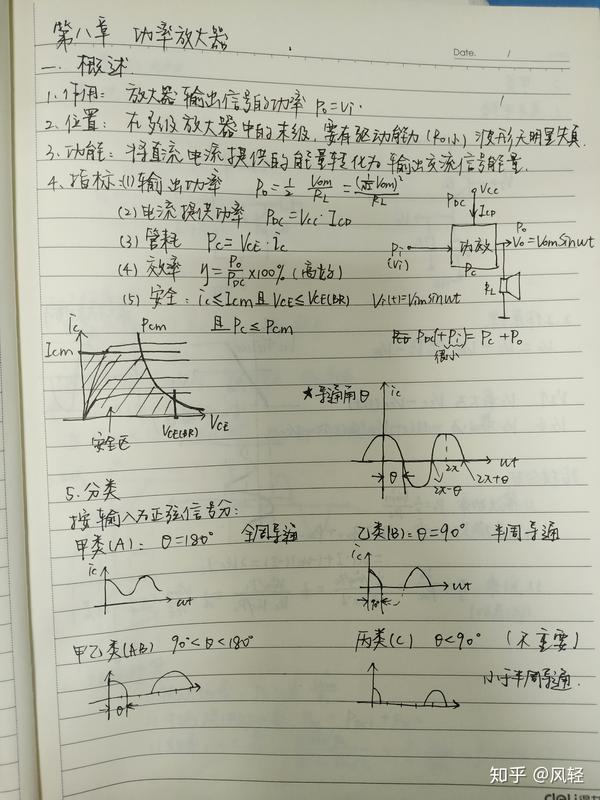 第八章 功率放大器
Date. /
一. 概述
1. 作用: 放大器输出信号的功率 Po=Vi.
2. 位置: 在多级放大器中的末级, 要有驱动能力(Ro小) 波形无明显失真.
3. 功能: 将直流电流提供的能量转化为输出交流信号能量.
4. 指标: (1) 输出功率 Po=1/2 Vom²/RL=(1/√2 Vom)²/RL
(2) 电流提供功率 PDC=Vcc·ICD
(3) 管耗 Pc=VCE·ic
(4) 效率 η=Po/PDC×100% (高好)
(5) 安全: ic≤Icm且VCE≤VCE(BR)
且Pc≤Pcm
Vcc
PDC ICD
Pi
(Vi)
功放
Pc
Po
Vo=Vom sinωt
RL
Vi(t)=Vim sinωt
PDC(+Pi)=Pc+Po
很小
ic
Pcm
Icm
安全区
VCE(BR)
VCE
★导通角θ
ic
θ
2π
ωt
2π-θ
2π+θ
5. 分类
按输入为正弦信号分:
甲类(A): θ=180° 全周导通
乙类(B): θ=90° 半周导通
ic
ωt
ic
90°
ωt
甲乙类(AB) 90°<θ<180°
丙类(C) θ<90° (不重要)
小于半周导通.
θ
知乎 @风轻
deli